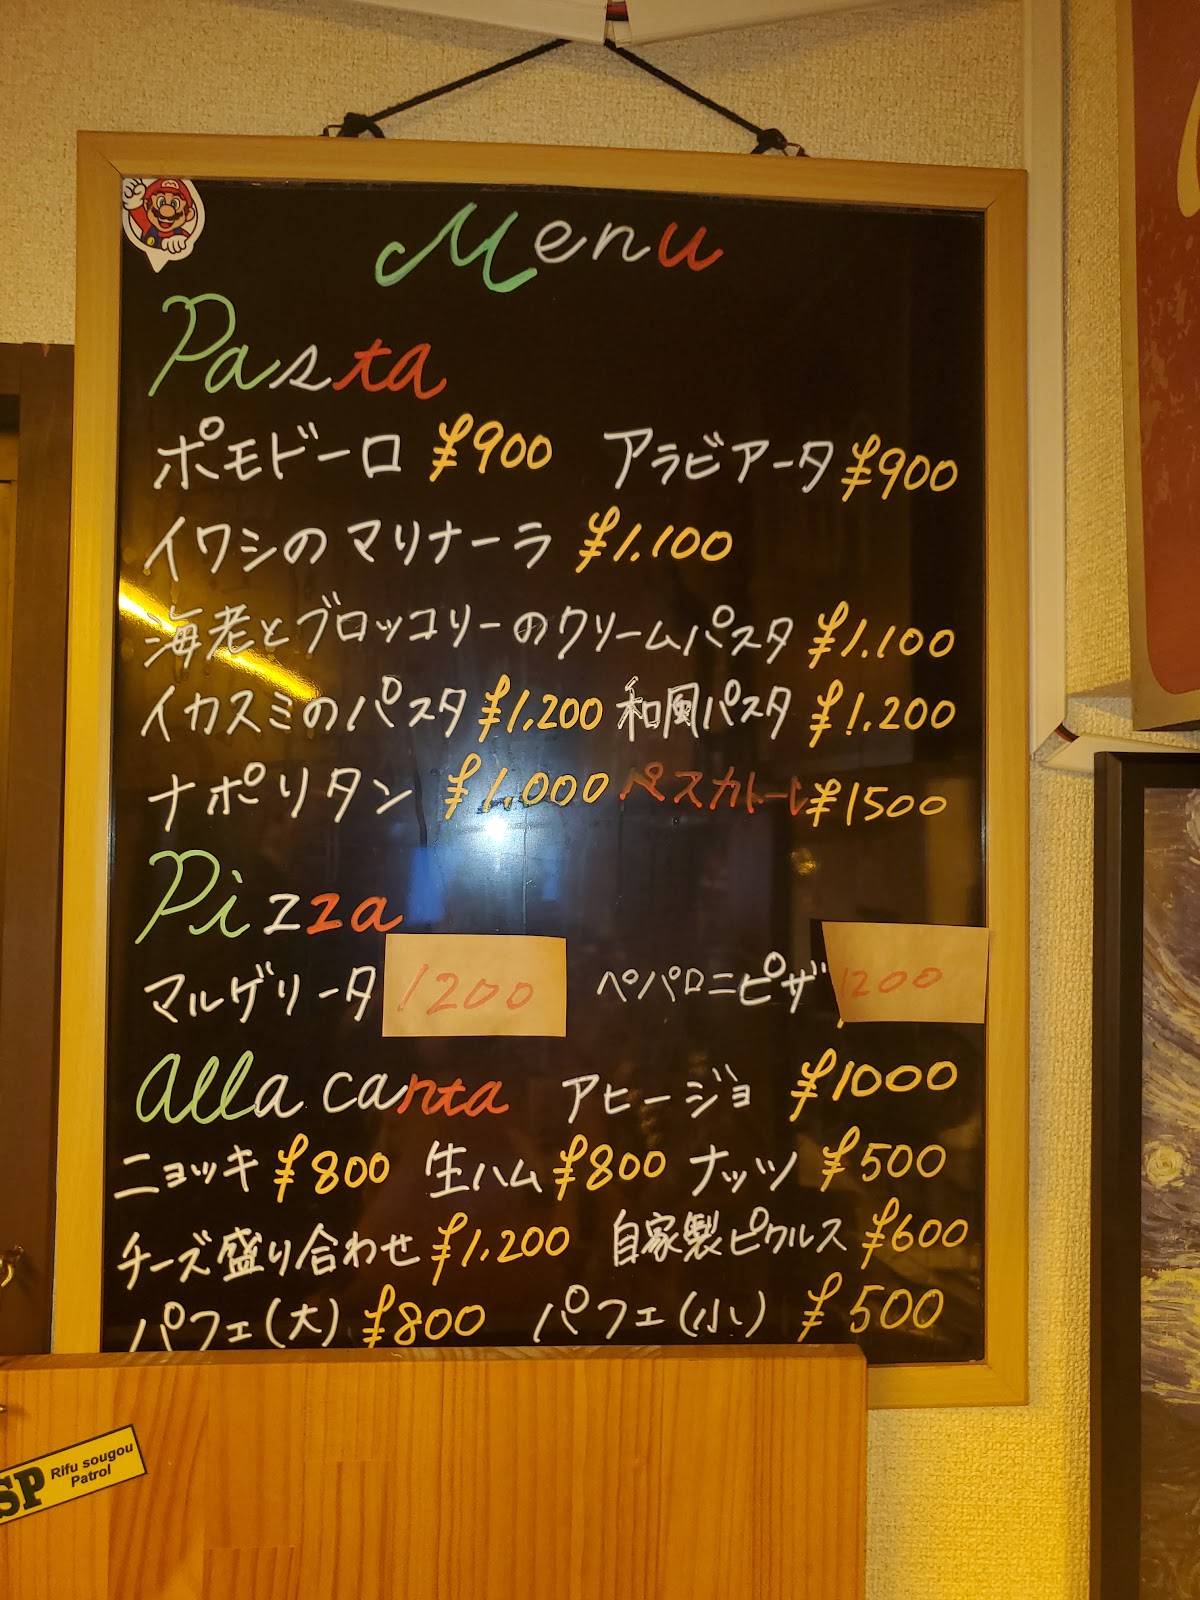 Menu
Pasta
ポモドーロ ¥900 アラビアータ ¥900
イワシのマリナーラ ¥1.100
海老とブロッコリーのクリームパスタ ¥1.100
イカスミのパスタ ¥1.200 和風パスタ ¥1.200
ナポリタン ¥1.000 ペスカトーレ ¥1500
Pizza
マルゲリータ 1200 ペパロニピザ 1200
alla carta アヒージョ ¥1000
ニョッキ ¥800 生ハム ¥800 ナッツ ¥500
チーズ盛り合わせ ¥1.200 自家製ピクルス ¥600
パフェ(大) ¥800 パフェ(小) ¥500
SP Rifu sougou
Patrol